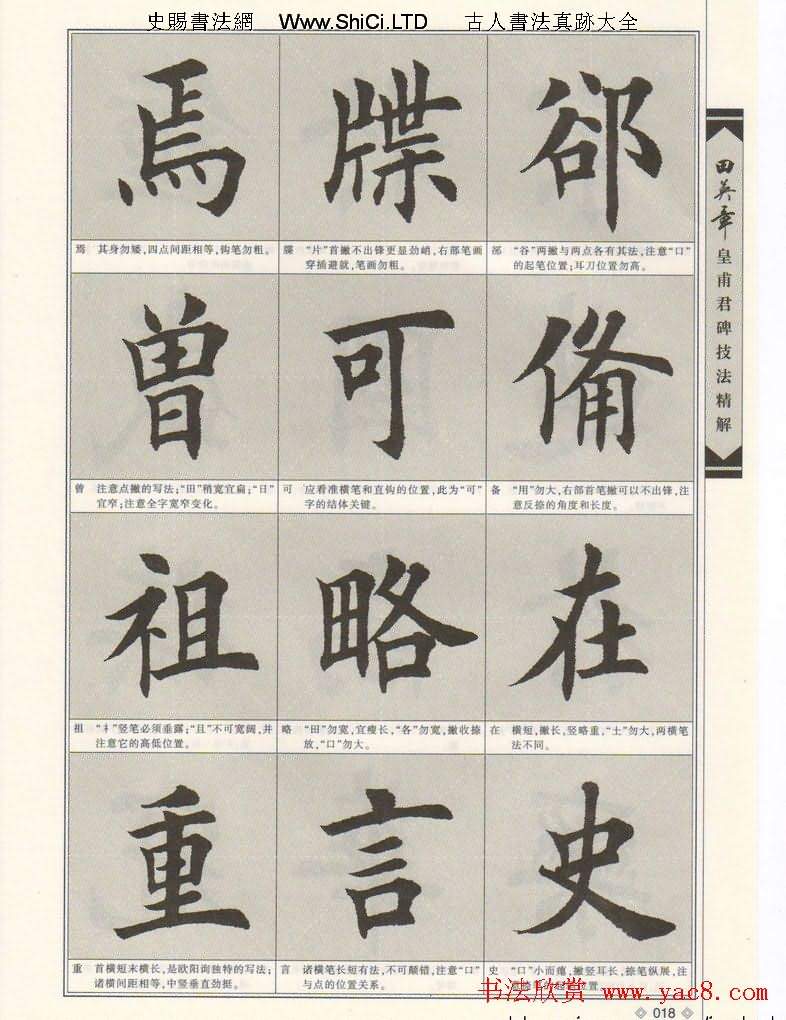 史賜書法網 Www.ShiCi.LTD 古人書法真跡大全
田英章
皇甫君碑技法精解
焉 牒 郤
焉 其身勿矮,四点间距相等,钩笔勿粗。
牒 “片”首撇不出锋更显劲峭,右部笔画
穿插避就,笔画勿粗。
郤 “谷”两撇与两点各有其法,注意“口”
的起笔位置;耳刀位置勿高。
曾 可 俻
曾 注意点撇的写法;“田”稍宽宜扁;“日”
宜窄;注意全字宽窄变化。
可 应看准横笔和直钩的位置,此为“可”
字的结体关键。
备 “用”勿大,右部首笔撇可以不出锋,注
意反捺的角度和长度。
祖 略 在
祖 “礻”竖笔必须垂露;“且”不可宽阔,并
注意它的高低位置。
略 “田”勿宽,宜瘦长,“各”勿宽,撇收捺
放,“口”勿大。
在 横短,撇长,竖略重,“土”勿大,两横笔
法不同。
重 言 史
重 首横短末横长,是欧阳询独特的写法;
诸横间距相等,中竖垂直劲挺。
言 诸横笔长短有法,不可颠错,注意“口”
与点的位置关系。
史 “口”小而瘪,撇竖耳长,捺笔纵展,注
位置。
书法欣赏 www.yac8.com
018